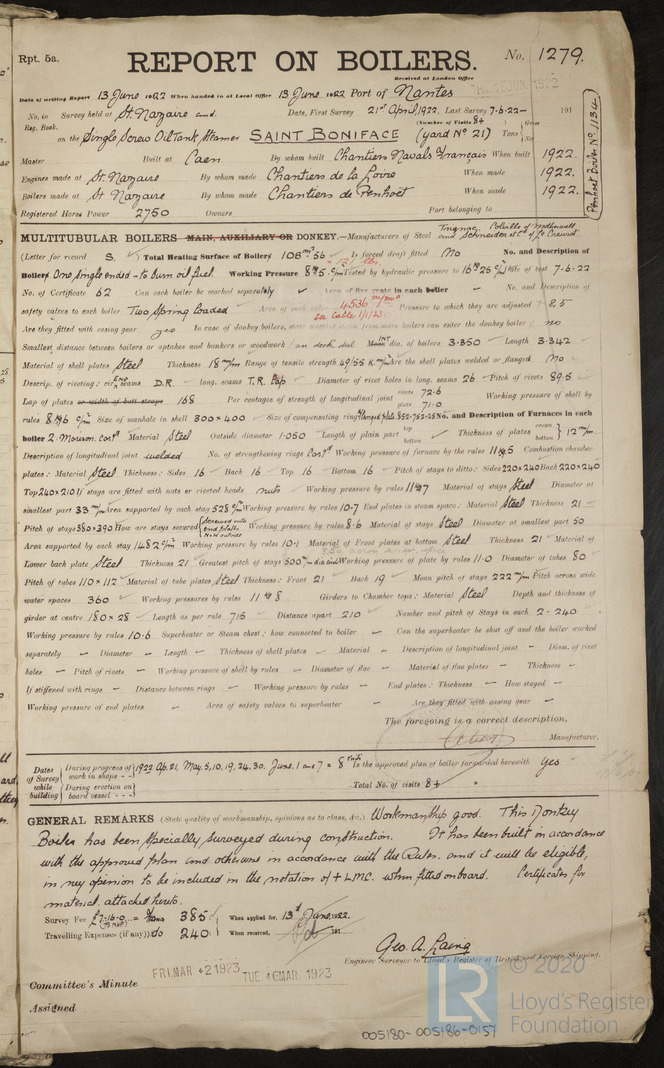 Rpt. 5a.
REPORT ON BOILERS.
No. 1279.
Received at London Office
Date of writing Report 13 June 1922 When handed in at Local Office 13 June 1922 Port of Nantes
No. in Survey held at St. Nazaire Date, First Survey 21st April, 1922. Last Survey 7-6-22 191
Reg. Book. (Number of Visits 8+)
on the Single Screw Oil Tank Steamer SAINT BONIFACE (yard No 21) Tons Gross Net
Master Built at Caen By whom built Chantiers Navals Français When built 1922.
Engines made at St. Nazaire By whom made Chantiers de la Loire When made 1922.
Boilers made at St Nazaire By whom made Chantiers de Penhoët When made 1922.
Registered Horse Power 2750 Owners Port belonging to
Penhoet Boiler No. 1134
MULTITUBULAR BOILERS MAIN, AUXILIARY OR DONKEY.—Manufacturers of Steel
(Letter for record S.) Total Heating Surface of Boilers 108 m² 56 Is forced draft fitted No No. and Description of
Boilers One single ended - to burn oil fuel. Working Pressure 8.5 Tested by hydraulic pressure to Date of test 7-6-22
No. of Certificate 62 Can each boiler be worked separately Area of fire grate in each boiler No. and Description of
safety valves to each boiler Two, Spring loaded Area of each valve 4536 Pressure to which they are adjusted 8.5
see Cable 1/1/23
Are they fitted with easing gear yes In case of donkey boilers, state whether steam from main boilers can enter the donkey boiler no
Smallest distance between boilers or uptakes and bunkers or woodwork on deck Int dia. of boilers 3.350 Length 3.342
Material of shell plates Steel Thickness 18 m/m Range of tensile strength 49/55 Are the shell plates welded or flanged No
Descrip. of riveting: cir. seams End D.R. long. seams T.R. Diameter of rivet holes in long. seams 26 Pitch of rivets 89.5
Lap of plates or width of butt straps 168 Per centages of strength of longitudinal joint rivets 72.6 plate 71.0 Working pressure of shell by
rules Size of manhole in shell 300 x 400 Size of compensating ring No. and Description of Furnaces in each
boiler 2. Morison. Corrd Material Steel Outside diameter 1.050 Length of plain part top bottom Thickness of plates crown bottom 12 m/m
Description of longitudinal joint welded No. of strengthening rings Corrd Working pressure of furnace by the rules Combustion chamber
plates: Material Steel Thickness: Sides 16 Back 16 Top 16 Bottom 16 Pitch of stays to ditto: Sides 220x240 Back 220x240
Top 240x210 If stays are fitted with nuts or riveted heads nuts Working pressure by rules Material of stays Steel Diameter at
smallest part 33 m/m Area supported by each stay 528 Working pressure by rules 10.7 End plates in steam space: Material Steel Thickness 21
Pitch of stays 380x390 How are stays secured Screwed into end plates Nuts outside Working pressure by rules 8.6 Material of stays Steel Diameter at smallest part 50
Area supported by each stay 1482 Working pressure by rules 10.1 Material of Front plates at bottom Steel Thickness 21 Material of
Lower back plate Steel Thickness 21 Greatest pitch of stays 500 m/m Working pressure of plate by rules 11.0 Diameter of tubes 80
Pitch of tubes 110 x 112 Material of tube plates Steel Thickness: Front 21 Back 19 Mean pitch of stays 222 m/m Pitch across wide
water spaces 360 Working pressures by rules Girders to Chamber tops: Material Steel Depth and thickness of
girder at centre 180 x 28 Length as per rule 715 Distance apart 210 Number and pitch of Stays in each 2 - 240
Working pressure by rules 10.6 Superheater or Steam chest; how connected to boiler – Can the superheater be shut off and the boiler worked
separately – Diameter – Length – Thickness of shell plates – Material – Description of longitudinal joint – Diam. of rivet
holes – Pitch of rivets – Working pressure of shell by rules – Diameter of flue – Material of flue plates – Thickness –
If stiffened with rings – Distance between rings – Working pressure by rules – End plates: Thickness – How stayed –
Working pressure of end plates – Area of safety valves to superheater – Are they fitted with easing gear –
The foregoing is a correct description,
Manufacturer.
Dates of Survey while building
During progress of work in shops - - 1922 Ap. 21, May, 5, 10, 19, 24, 30. June. 1 and 7 = 8 Is the approved plan of boiler forwarded herewith Yes
During erection on board vessel - - - Total No. of visits 8+
GENERAL REMARKS (State quality of workmanship, opinions as to class, &c.) Workmanship good. This Donkey
Boiler has been specially surveyed during construction. It has been built in accordance
with the approved plan and otherwise in accordance with the Rules. and it will be eligible,
in my opinion to be included in the notation of + LMC. when fitted onboard. Certificates for
material, attached hereto.
Survey Fee £7-16-0 = 385 When applied for, 13th June, 1922.
Travelling Expenses (if any) do 240 When received, 191
Geo. A. Laing
Engineer Surveyor to Lloyd's Register of British and Foreign Shipping.
Committee's Minute FRI. MAR. 2 1923 TUE. 6 MAR. 1923
Assigned
© 2020
Lloyd's Register
Foundation
LR
005180-005186-0157